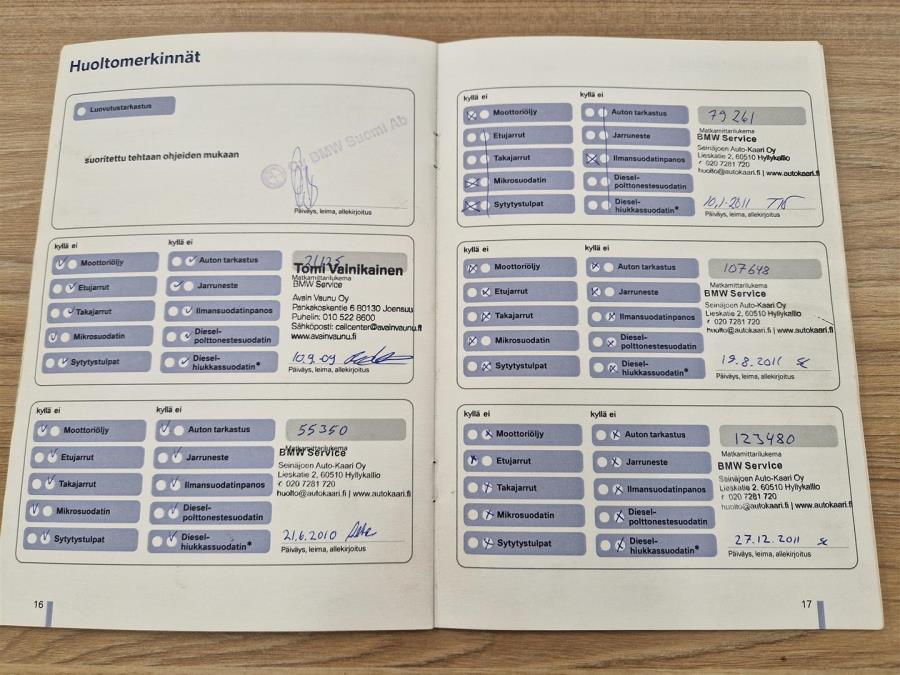 Huoltomerkinnät
Luovutustarkastus
suoritettu tehtaan ohjeiden mukaan
BMW Suomi Ab
Päiväys, leima, allekirjoitus
kyllä ei
kyllä ei
Moottoriöljy
Etujarrut
Takajarrut
Mikrosuodatin
Sytytystulpat
Auton tarkastus
Jarruneste
Ilmansuodatinpanos
Diesel-
polttonestesuodatin
Diesel-
hiukkassuodatin*
Tomi Vainikainen
Matkamittarilukema
BMW Service
Avain Vaunu Oy
Pankakoskentie 6 80130 Joensuu
Puhelin: 010 522 8600
Sähköposti: callcenter@avainvaunu.fi
www.avainvaunu.fi
10.9.09
Päiväys, leima, allekirjoitus
kyllä ei
kyllä ei
Moottoriöljy
Etujarrut
Takajarrut
Mikrosuodatin
Sytytystulpat
Auton tarkastus
Jarruneste
Ilmansuodatinpanos
Diesel-
polttonestesuodatin
Diesel-
hiukkassuodatin*
55350
Matkamittarilukema
BMW Service
Seinäjoen Auto-Kaari Oy
Lieskatie 2, 60510 Hyllykallio
020 7281 720
huolto@autokaari.fi | www.autokaari.fi
21.6.2010
Päiväys, leima, allekirjoitus
16
kyllä ei
kyllä ei
Moottoriöljy
Etujarrut
Takajarrut
Mikrosuodatin
Sytytystulpat
Auton tarkastus
Jarruneste
Ilmansuodatinpanos
Diesel-
polttonestesuodatin
Diesel-
hiukkassuodatin*
79261
Matkamittarilukema
BMW Service
Seinäjoen Auto-Kaari Oy
Lieskatie 2, 60510 Hyllykallio
020 7281 720
huolto@autokaari.fi | www.autokaari.fi
10.1.2011
Päiväys, leima, allekirjoitus
kyllä ei
kyllä ei
Moottoriöljy
Etujarrut
Takajarrut
Mikrosuodatin
Sytytystulpat
Auton tarkastus
Jarruneste
Ilmansuodatinpanos
Diesel-
polttonestesuodatin
Diesel-
hiukkassuodatin*
107648
Matkamittarilukema
BMW Service
Seinäjoen Auto-Kaari Oy
Lieskatie 2, 60510 Hyllykallio
020 7281 720
huolto@autokaari.fi | www.autokaari.fi
19.8.2011
Päiväys, leima, allekirjoitus
kyllä ei
kyllä ei
Moottoriöljy
Etujarrut
Takajarrut
Mikrosuodatin
Sytytystulpat
Auton tarkastus
Jarruneste
Ilmansuodatinpanos
Diesel-
polttonestesuodatin
Diesel-
hiukkassuodatin*
123480
Matkamittarilukema
BMW Service
Seinäjoen Auto-Kaari Oy
Lieskatie 2, 60510 Hyllykallio
020 7281 720
huolto@autokaari.fi | www.autokaari.fi
27.12.2011
Päiväys, leima, allekirjoitus
17